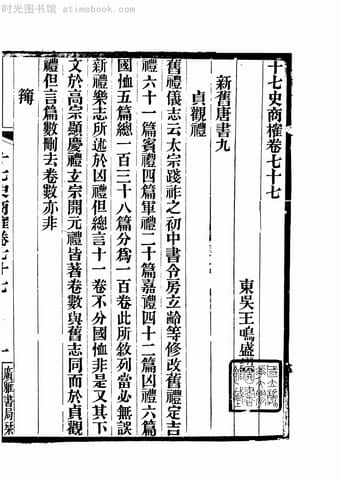 时光图书馆 atimebook.com
十七史商榷卷七十七
東吳王鳴盛
新舊唐書九
貞觀禮
舊禮儀志云太宗踐祚之初中書令房玄齡等修改舊禮定吉
禮六十一篇賓禮四篇軍禮二十篇嘉禮四十二篇凶禮六篇
國恤五篇總一百三十八篇分爲一百卷此所敘列當必無誤
新禮樂志所述於凶禮但總言十一卷不分國恤非是又其下
文於高宗顯慶禮玄宗開元禮皆著卷數與舊志同而於貞觀
禮但言篇數刪去卷數亦非
簿
十七史商榷卷七十七
一
廣雅書局栞